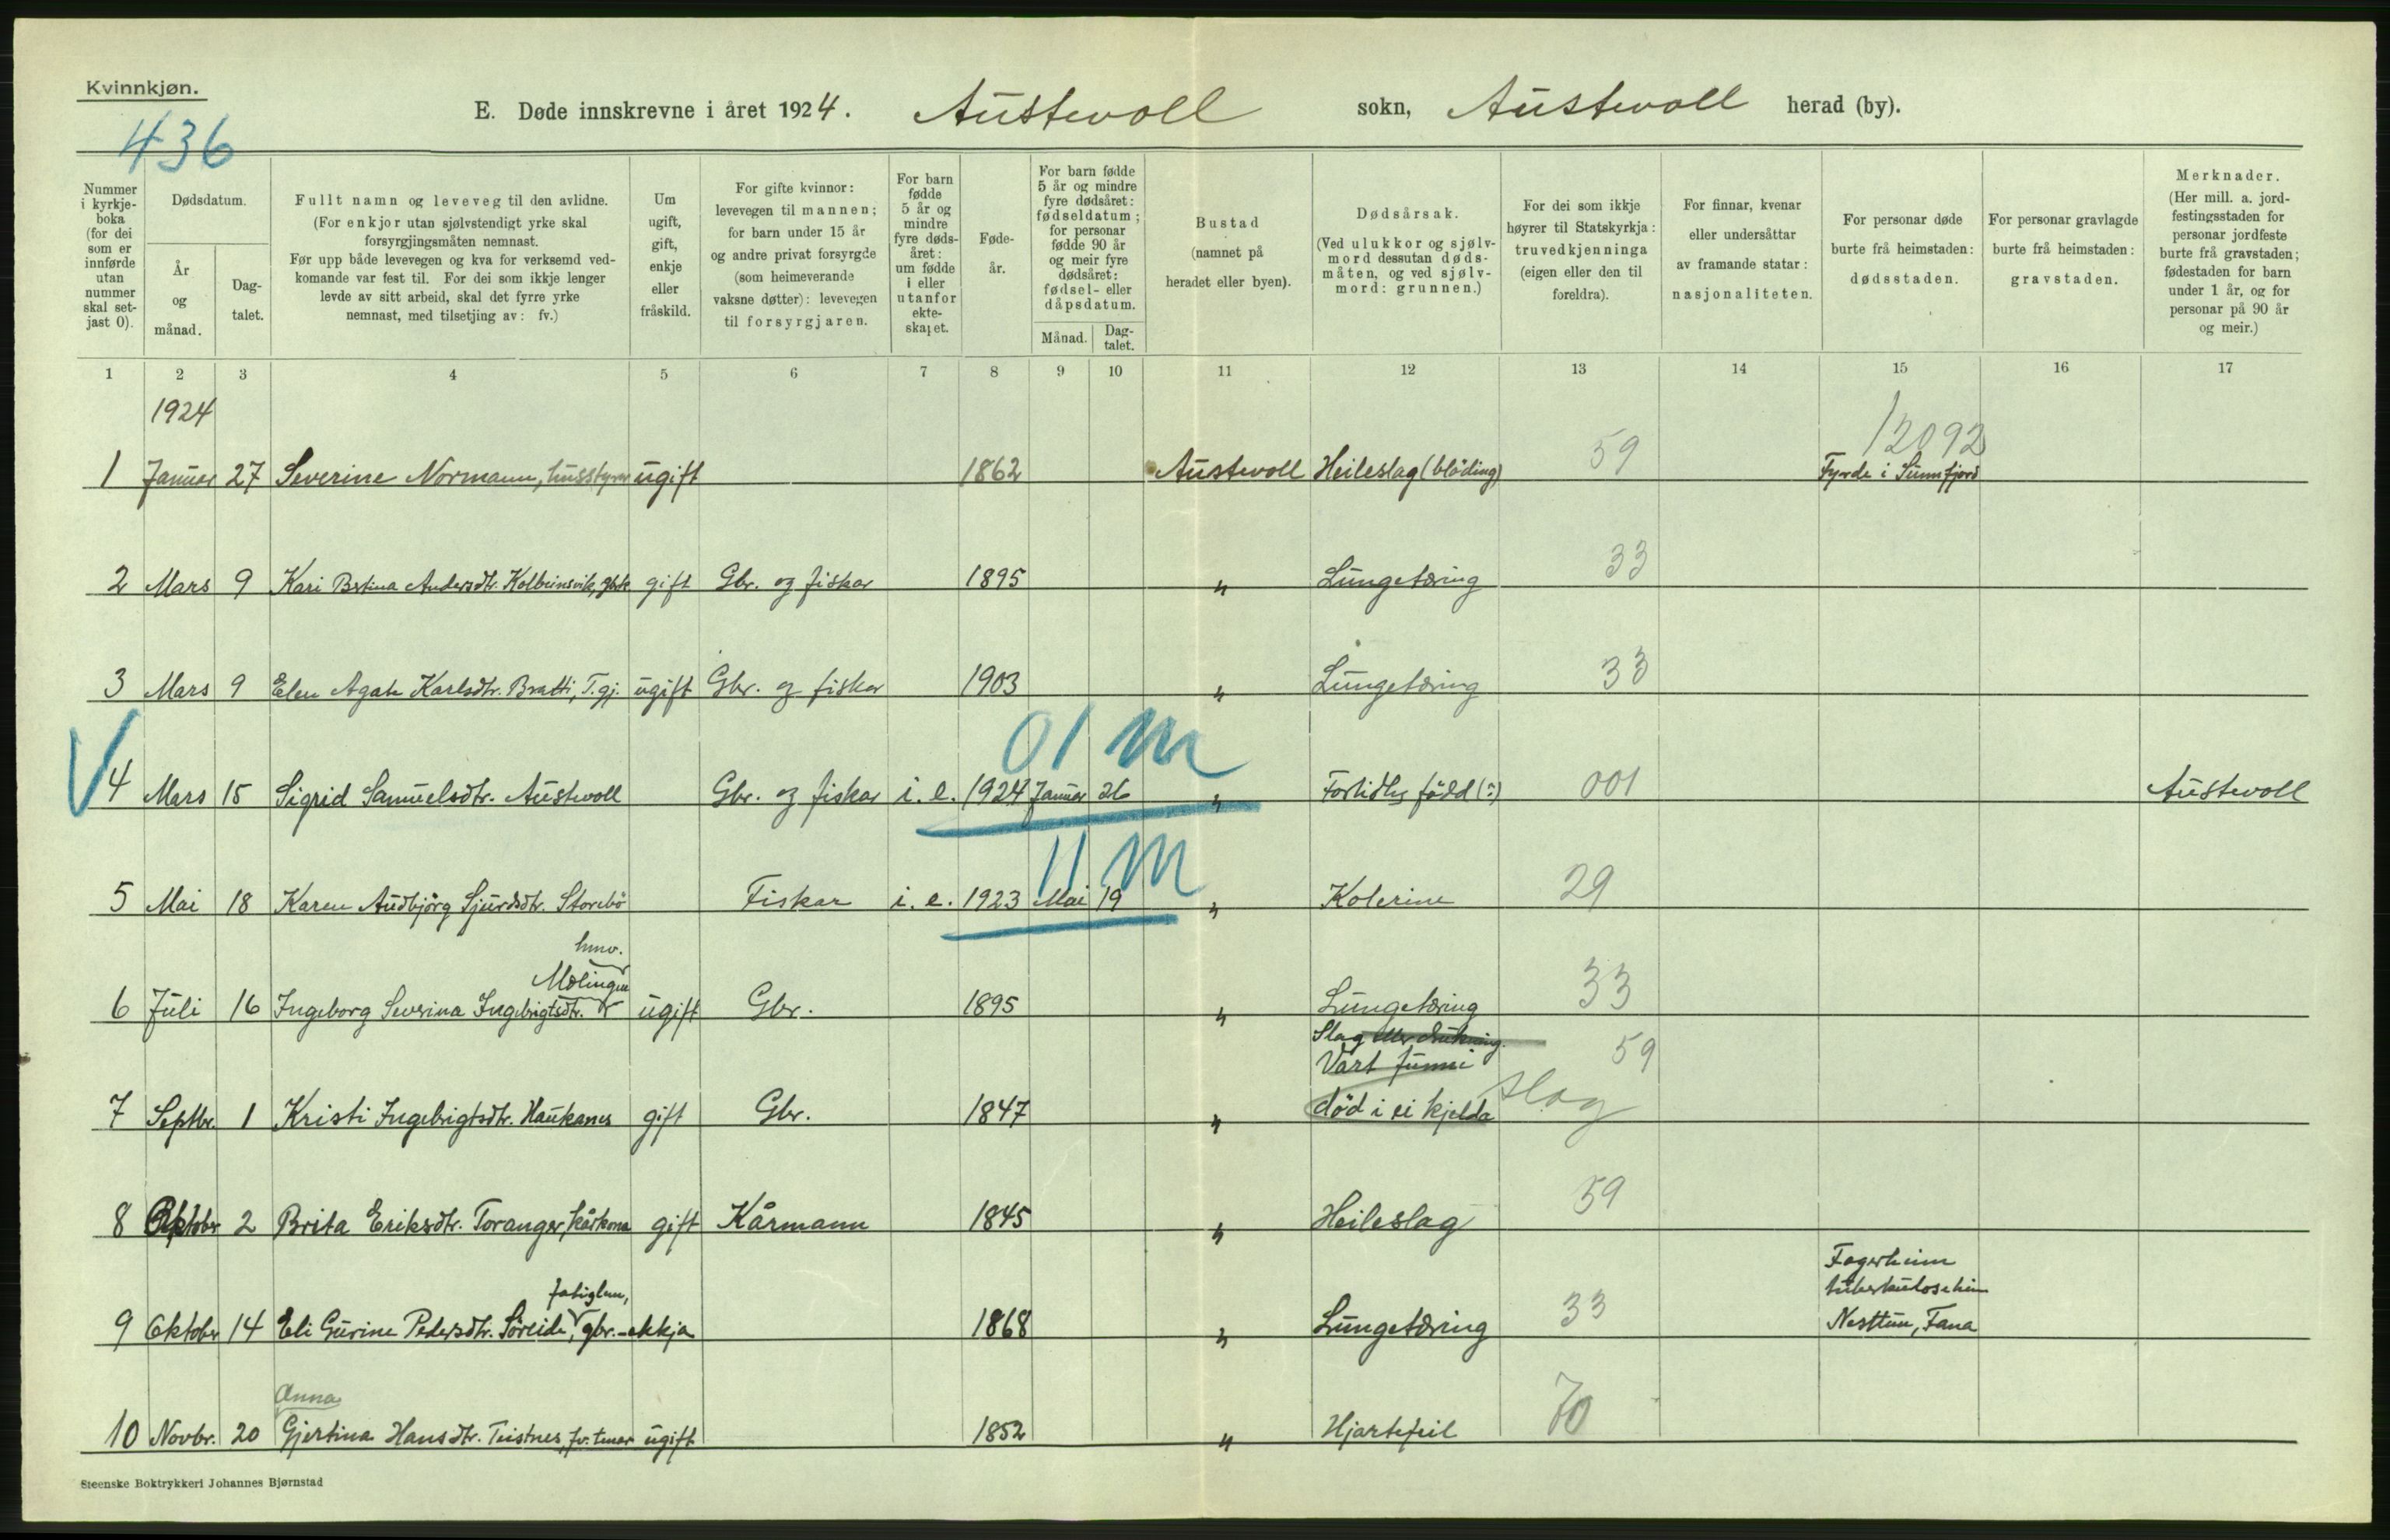 Kvinnkjøn.
436
E. Døde innskrevne i året 1924. Austevoll sokn, Austevoll herad (by).
Nummer i kyrkje-boka (for dei som er innførde utan nummer skal set-jast 0).
Dødsdatum.
År og månad.
Dag-talet.
Fullt namn og leveveg til den avlidne.
(For enkjor utan sjølvstendigt yrke skal
forsyrgjingsmåten nemnast.
Før upp både levevegen og kva for verksemd ved-
komande var fest til. For dei som ikkje lenger
levde av sitt arbeid, skal det fyrre yrke
nemnast, med tilsetjing av: fv.)
Um ugift, gift, enkje eller fråskild.
For gifte kvinnor:
levevegen til mannen;
for barn under 15 år
og andre privat forsyrgde
(som heimeverande
vaksne døtter): levevegen
til forsyrgjaren.
For barn fødde 5 år og mindre fyre døds-året: um fødde i eller utanfor ekte-skapet.
Føde-år.
For barn fødde 5 år og mindre fyre dødsåret: fødseldatum; for personar fødde 90 år og meir fyre dødsåret: fødsel- eller dåpsdatum.
Månad.
Dag-talet.
Bustad
(namnet på
heradet eller byen).
Dødsårsak.
(Ved ulukkor og sjølv-
mord dessutan døds-
måten, og ved sjølv-
mord: grunnen.)
For dei som ikkje
høyrer til Statskyrkja:
truvedkjenninga
(eigen eller den til
foreldra).
For finnar, kvenar
eller undersåttar
av framande statar:
nasjonaliteten.
For personar døde
burte frå heimstaden:
dødsstaden.
For personar gravlagde
burte frå heimstaden:
gravstaden.
Merknader.
(Her mill. a. jord-
festingsstaden for
personar jordfeste
burte frå gravstaden;
fødestaden for barn
under 1 år, og for
personar på 90 år
og meir.)
1 2 3 4 5 6 7 8 9 10 11 12 13 14 15 16 17
1924
12092
1 Januar 27 Severine Normann, husstyrar ugift 1862 Austevoll Heileslag (blöding) 59 Fyrde i Sunnfjord
2 Mars 9 Kari Bertina Andersdtr. Kolbeinsvik, gift Gbr. og fiskar 1895 " Lungetæring 33
3 Mars 9 Elen Agate Karlsdtr. Bratti, T.gj. ugift Gbr. og fiskar 1903 " Lungetæring 33
01 m
4 Mars 15 Sigrid Samuelsdtr. Austevoll Gbr. og fiskar i. e. 1924 Januar 26 " Fortidleg född (:) 001 Austevoll
11 m
5 Mai 18 Karen Audbjörg Sjurdsdtr. Storebö Fiskar i. e. 1923 Mai 19 " Kolerine 29
hmv.
Mølingen
6 Juli 16 Ingeborg Severina Ingebrigtsdtr. ugift Gbr. 1895 " Lungetæring 33
Slag eller drukning.
Vart funni 59
7 Septbr. 1 Kristi Ingebrigtsdtr. Haukanes gift Gbr. 1847 " död i ei kjelda slag
8 Oktober 2 Brita Eriksdtr. Toranger, kårkona gift Kårmann 1845 " Heileslag 59
Fagerheim
fatiglem, tuberkuloseheim
9 Oktober 14 Eli Gurine Pedersdtr. Söreide, gbr.-ekkja 1868 " Lungetæring 33 Nesttun, Fana
Anna
10 Novbr. 20 Gjertina Hansdtr. Teistnes, fv. tenar ugift 1852 " Hjartefeil 70
Steenske Boktrykkeri Johannes Bjørnstad